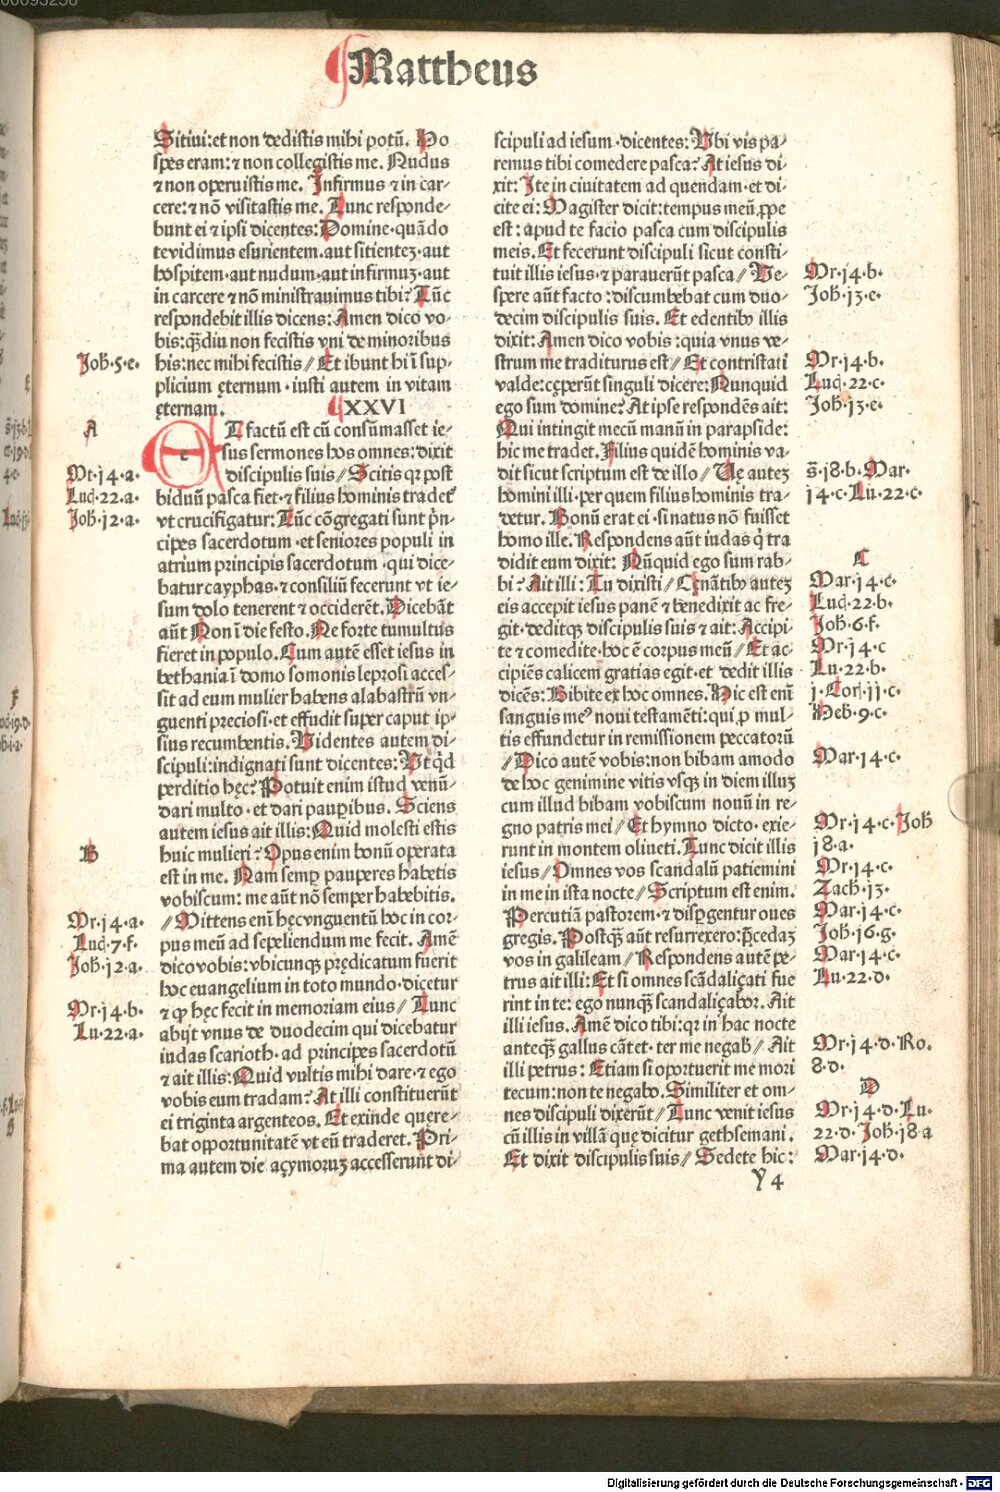 Mattheus
Sitivi: et non dedistis mihi potū. Ho
spes eram: ⁊ non collegistis me. Nudus
⁊ non operuistis me. Infirmus ⁊ in car-
cere: ⁊ nō visitastis me. Tunc responde-
bunt ei ⁊ ipsi dicentes: Domine · quādo
te vidimus esurientem · aut sitientez · aut
hospitem · aut nudum · aut infirmuz · aut
in carcere ⁊ nō ministrauimus tibi? Tūc
respondebit illis dicens: Amen dico vo-
bis: qȝdiu non fecistis vni de minoribus
his: nec mihi fecistis // Et ibunt hi ī sup-
plicium ęternum · iusti autem in vitam
ęternam.
XXVI
Et factū est cū consūmasset ie-
sus sermones hos omnes: dixit
discipulis suis // Scitis qꝛ post
biduū pasca fiet · ⁊ filius hominis tradet᷑
vt crucifigatur: Tūc cōgregati sunt p̄n-
cipes sacerdotum · et seniores populi in
atrium principis sacerdotum · qui dice-
batur cayphas · ⁊ consiliū fecerunt vt ie-
sum dolo tenerent ⁊ occiderēt. Dicebāt
aūt Non ī die festo. Ne forte tumultus
fieret in populo. Cum autē esset iesus in
bethania ī domo somonis leprosi acces-
sit ad eum mulier habens alabastrū vn-
guenti preciosi · et effudit super caput ip-
sius recumbentis. Videntes autem di-
scipuli: indignati sunt dicentes: Vt qd
perditio hęc? Potuit enim istud venū-
dari multo · et dari pauꝑibus. Sciens
autem iesus ait illis: Quid molesti estis
huic mulieri? Opus enim bonū operata
est in me. Nam semꝑ pauperes habetis
vobiscum: me aūt nō semper habebitis.
// Mittens enī hęc vnguentū hoc in cor-
pus meū ad sepeliendum me fecit. Amē
dico vobis: vbicunqȝ prędicatum fuerit
hoc euangelium in toto mundo · dicetur
⁊ ꝙ hęc fecit in memoriam eius // Tunc
abijt vnus de duodecim qui dicebatur
iudas scarioth · ad principes sacerdotū
⁊ ait illis: Quid vultis mihi dare · ⁊ ego
vobis eum tradam? At illi constituerūt
ei triginta argenteos. Et exinde quere-
bat opportunitatē vt eū traderet. Pri-
ma autem die açymoruȝ accesserunt di-
Joh · 5 · e ·
A
Mt · j4 · a ·
Luc · 22 · a ·
Joh · j2 · a ·
B
Mr · j4 · a ·
Luc · 7 · f ·
Joh · j2 · a ·
Mr · j4 · b ·
Lu · 22 · a ·
scipuli ad iesum · dicentes: Vbi vis pa-
remus tibi comedere pasca? At iesus di-
xit: Ite in ciuitatem ad quendam · et di-
cite ei: Magister dicit: tempus meū ꝓpe
est: apud te facio pasca cum discipulis
meis. Et fecerunt discipuli sicut consti-
tuit illis iesus · ⁊ parauerūt pasca // Ve-
spere aūt facto: discumbebat cum duo-
decim discipulis suis. Et edentibȝ illis
dixit: Amen dico vobis: quia vnus ve-
strum me traditurus est // Et contristati
valde: cęperūt singuli dicere: Nunquid
ego sum domine? At ipse respondēs ait:
Qui intingit mecū manū in parapside:
hic me tradet. Filius quidē hominis va-
dit sicut scriptum est de illo // Vę autez
homini illi · per quem filius hominis tra-
detur. Bonū erat ei · si natus nō fuisset
homo ille. Respondens aūt iudas q̇ tra
didit eum dixit: Nūquid ego sum rab-
bi? Ait illi: Tu dixisti // Cęnātibȝ autez
eis accepit iesus panē ⁊ benedixit ac fre-
git · deditqȝ discipulis suis ⁊ ait: Accipi-
te ⁊ comedite · hoc ē corpus meū // Et ac-
cipiēs calicem gratias egit · et dedit illis
dicēs: Bibite ex hoc omnes. Hic est enī
sanguis me⁹ noui testamēti: qui ꝓ mul-
tis effundetur in remissionem peccatorū
// Dico autē vobis: non bibam amodo
de hoc genimine vitis vsqȝ in diem illuȝ
cum illud bibam vobiscum nouū in re-
gno patris mei // Et hymno dicto · exie-
runt in montem oliueti. Tunc dicit illis
iesus // Omnes vos scandalū patiemini
in me in ista nocte // Scriptum est enim.
Percutiā pastorem · ⁊ dispgentur oues
gregis. Postqȝ aūt resurrexero: p̄cedaȝ
vos in galileam // Respondens autē pe-
trus ait illi: Et si omnes scādaliçati fue
rint in te: ego nunqȝ scandaliçabor. Ait
illi iesus. Amē dico tibi: qꝛ in hac nocte
anteqȝ gallus cātet · ter me negab̄ // Ait
illi petrus: Etiam si oportuerit me mori
tecum: non te negabo. Similiter et om-
nes discipuli dixerūt // Tunc venit iesus
cū illis in villā quę dicitur gethsemani.
Et dixit discipulis suis // Sedete hic:
y 4
Mr · j4 · b ·
Joh · j3 · c ·
Mr · j4 · b ·
Luc · 22 · c ·
Joh · j3 · c ·
s̄ · j8 · b · Mar ·
j4 · c · Lu · 22 · c ·
C
Mar · j4 · c ·
Luc · 22 · b ·
Joh · 6 · f ·
Mr · j4 · c
Lu · 22 · b ·
j · Cor · jj · c ·
Heb · 9 · c ·
Mar · j4 · c ·
Mr · j4 · c · Joh
j8 · a ·
Mr · j4 · c ·
Zach · j3 ·
Mar · j4 · c ·
Joh · j6 · g ·
Mar · j4 · c ·
Lu · 22 · d ·
Mr · j4 · d · Ro ·
8 · d ·
D
Mr · j4 · d · Lu ·
22 · d · Joh · j8 a
Mar · j4 · d ·
Digitalisierung gefördert durch die Deutsche Forschungsgemeinschaft - DFG